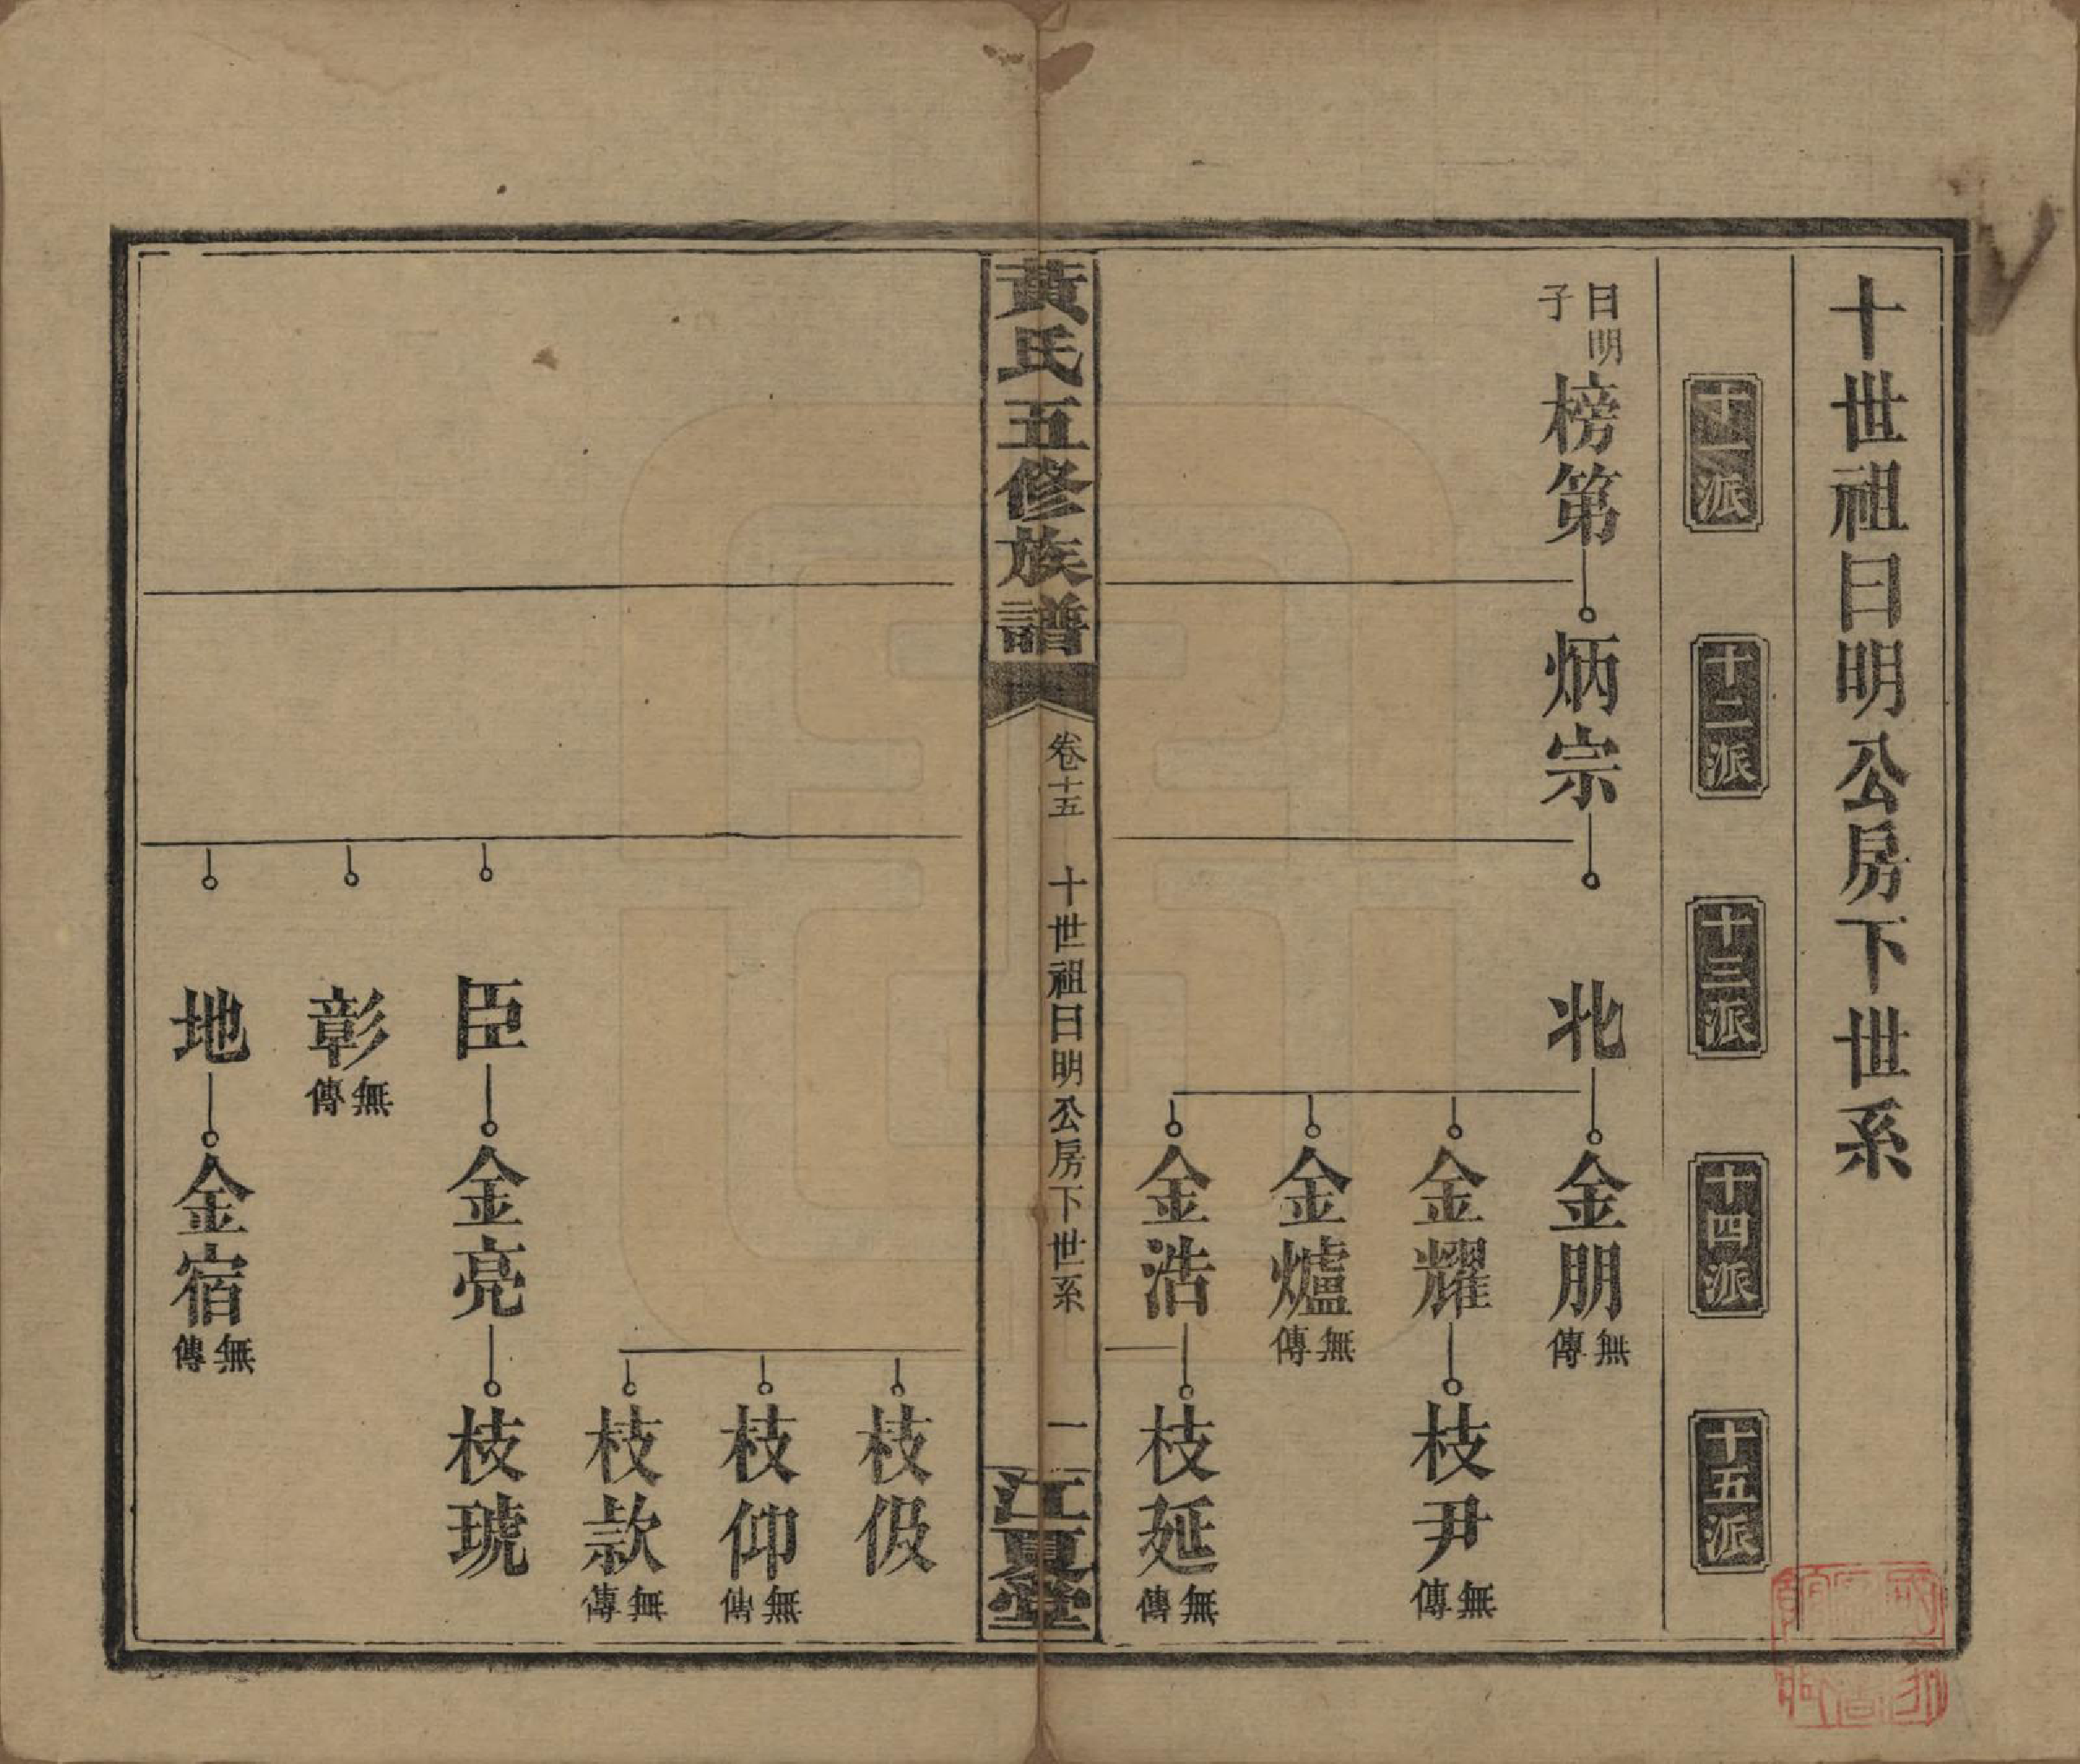 十世祖日明公房下世系
十一派
十二派
十三派
十四派
十五派
日明子
榜第
炳宗
兆
金朋
無傳
金耀
枝尹
無傳
金爐
無傳
金浩
枝延
無傳
黃氏五修族譜
卷十五
十世祖日明公房下世系
一
江夏堂
枝伋
枝仰
無傳
枝款
無傳
臣
金亮
枝琥
彰
無傳
地
金宿
無傳